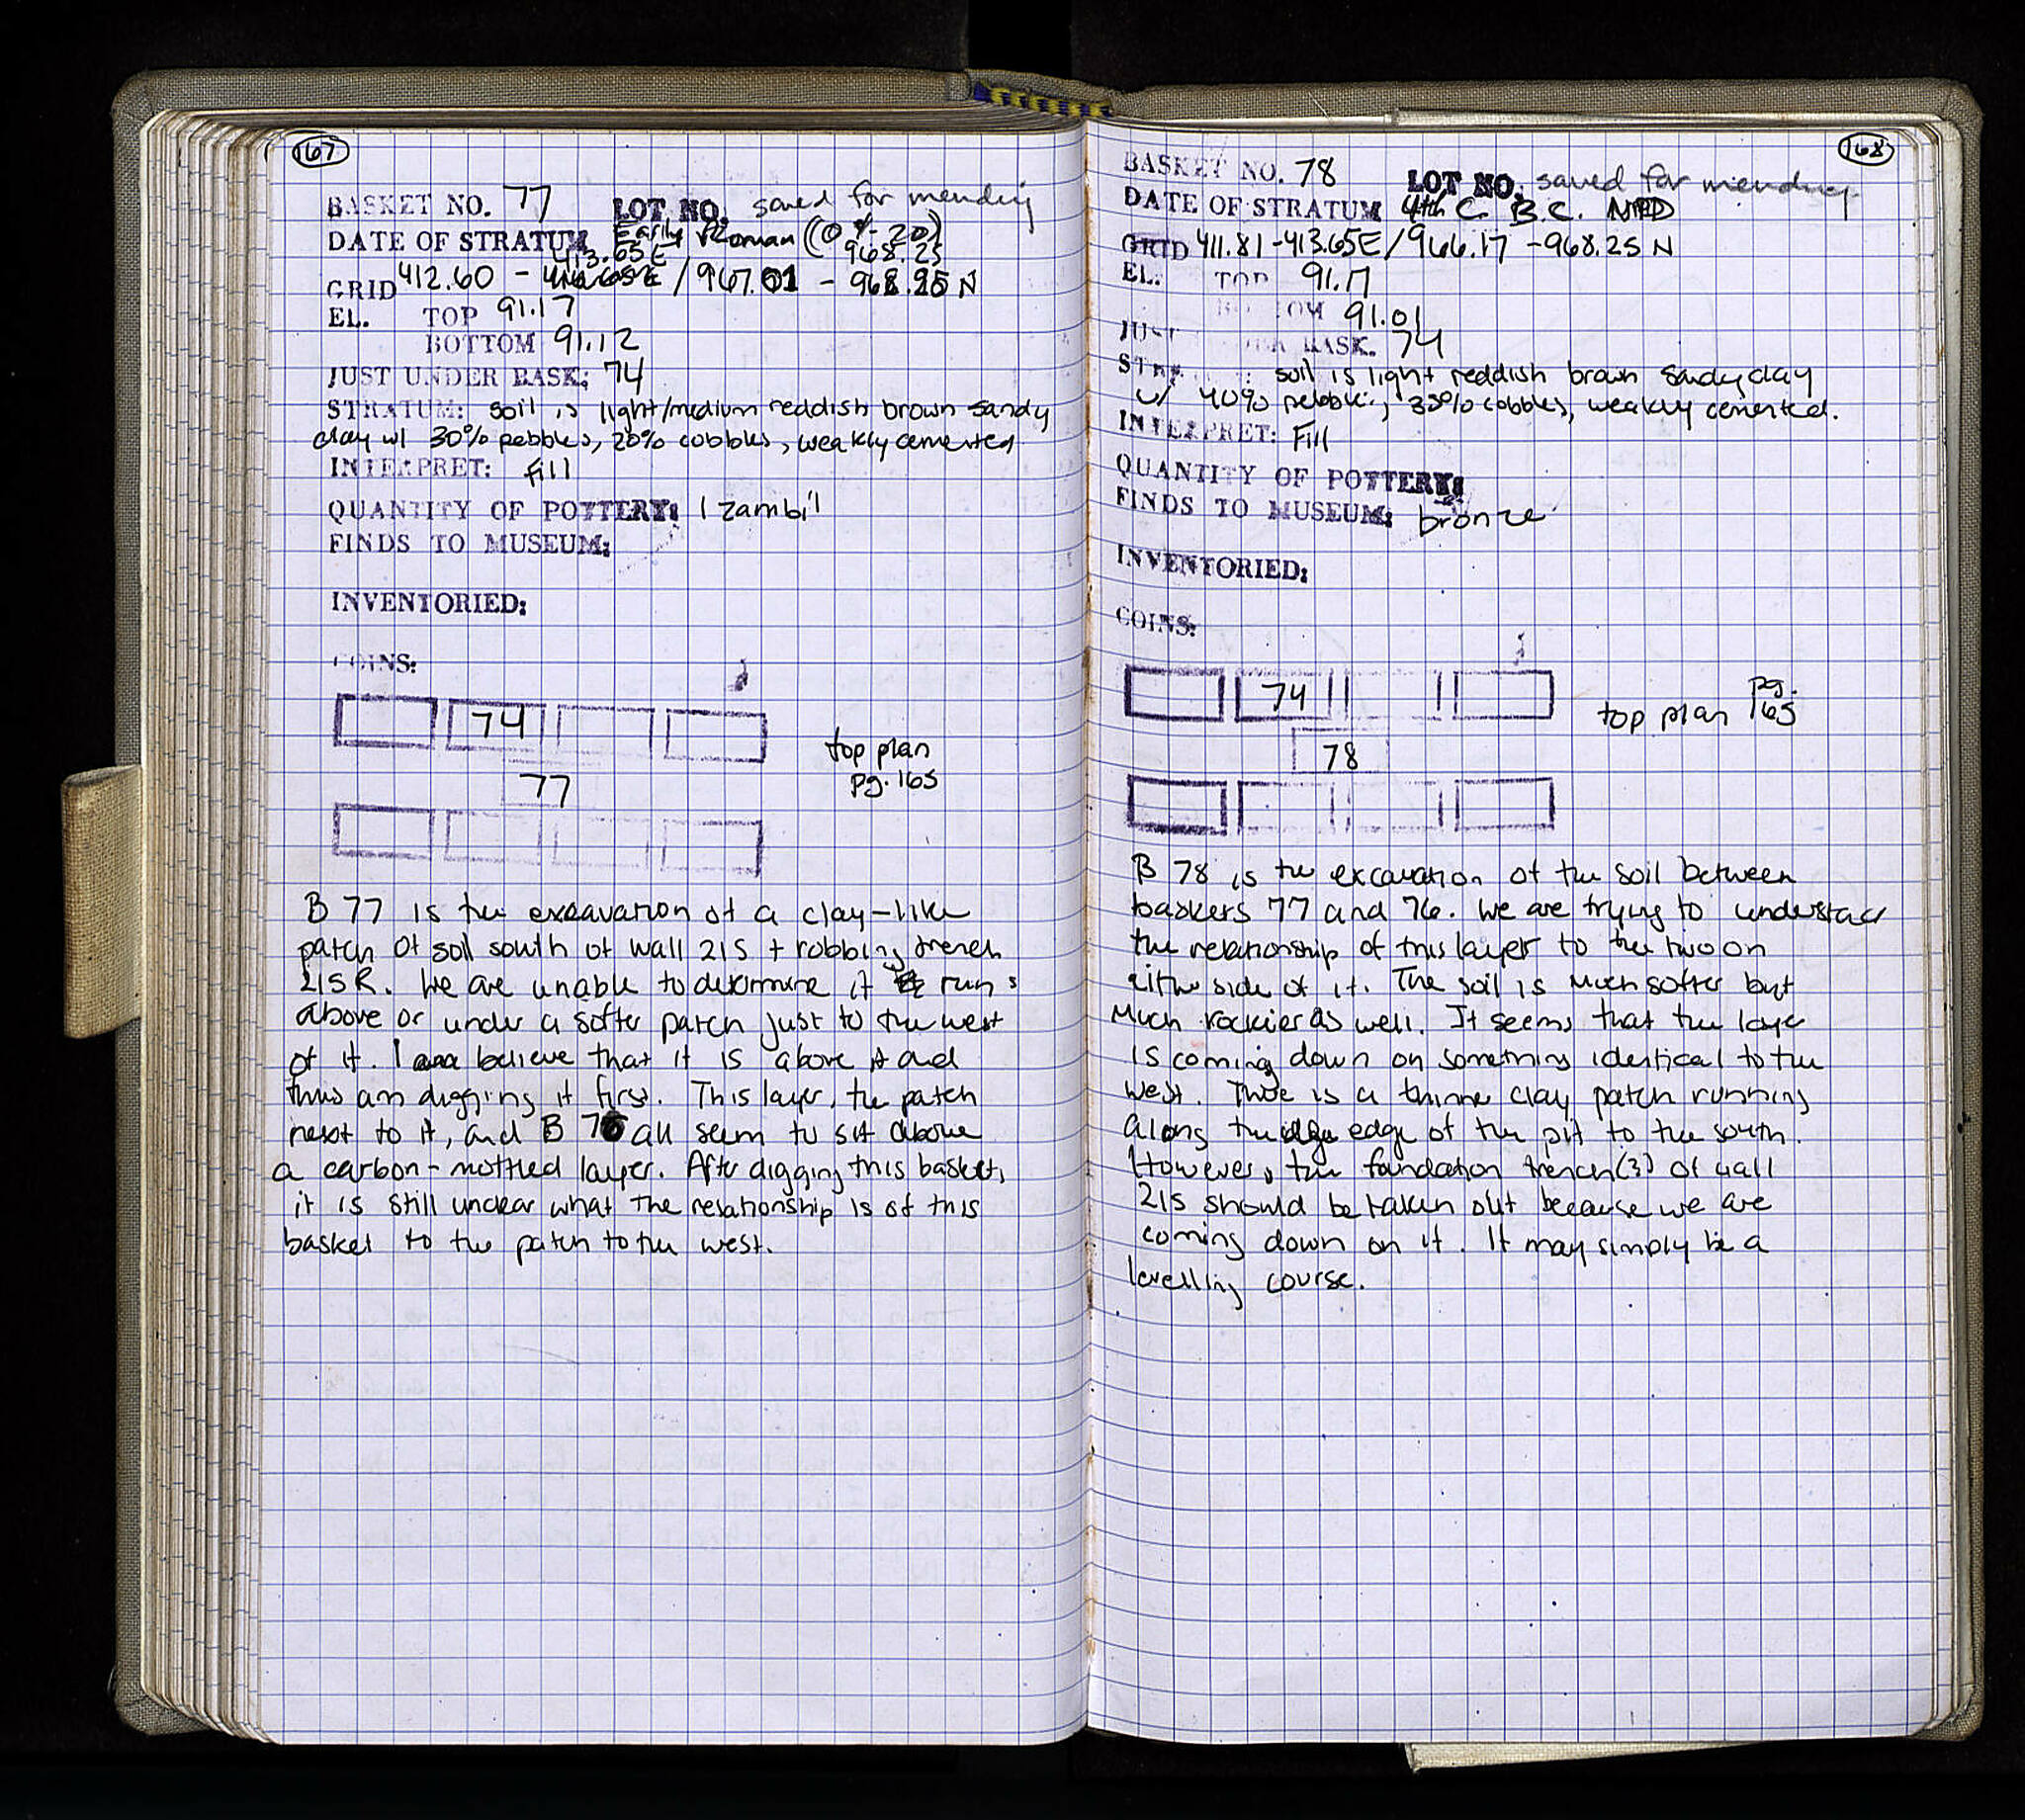 167
BASKET NO. 77 LOT NO. saved for mending
DATE OF STRATUM Early Roman (0 - 20)
413.65E 968.25
GRID 412.60 - / 967.01 - 968.25 N
EL. TOP 91.17
BOTTOM 91.12
JUST UNDER BASK: 74
STRATUM: soil is light/medium reddish brown sandy
clay w/ 30% pebbles, 20% cobbles, weakly cemented
INTERPRET: fill
QUANTITY OF POTTERY: 1 zambil
FINDS TO MUSEUM:
INVENTORIED:
COINS:
74
77
top plan
pg. 165
B 77 is the excavation of a clay-like
patch of soil south of wall 215 + robbing trench
215R. We are unable to determine if runs
above or under a softer patch just to the west
of it. I believe that it is above it and
thus am digging it first. This layer, the patch
next to it, and B 76 all seem to sit above
a carbon-mottled layer. After digging this basket,
it is still unclear what the relationship is of this
basket to the patch to the west.
168
BASKET NO. 78 LOT NO. saved for mending
DATE OF STRATUM 4th C. B.C. NPD
GRID 411.81-413.65E/966.17 -968.25 N
EL. TOP 91.17
BOTTOM 91.01
JUST BASK. 74
soil is light reddish brown sandy clay
w/ 40% pebbles, 35% cobbles, weakly cemented.
INTERPRET: Fill
QUANTITY OF POTTERY:
FINDS TO MUSEUM: bronze
INVENTORIED:
COINS:
74
78
top plan pg. 165
B 78 is the excavation of the soil between
baskets 77 and 76. We are trying to understand
the relationship of this layer to the two on
either side of it. The soil is much softer but
much rockier as well. It seems that the layer
is coming down on something identical to the
west. There is a thinner clay patch running
along the edge of the pit to the south.
However, the foundation trench(?) of wall
215 should be taken out because we are
coming down on it. It may simply be a
levelling course.